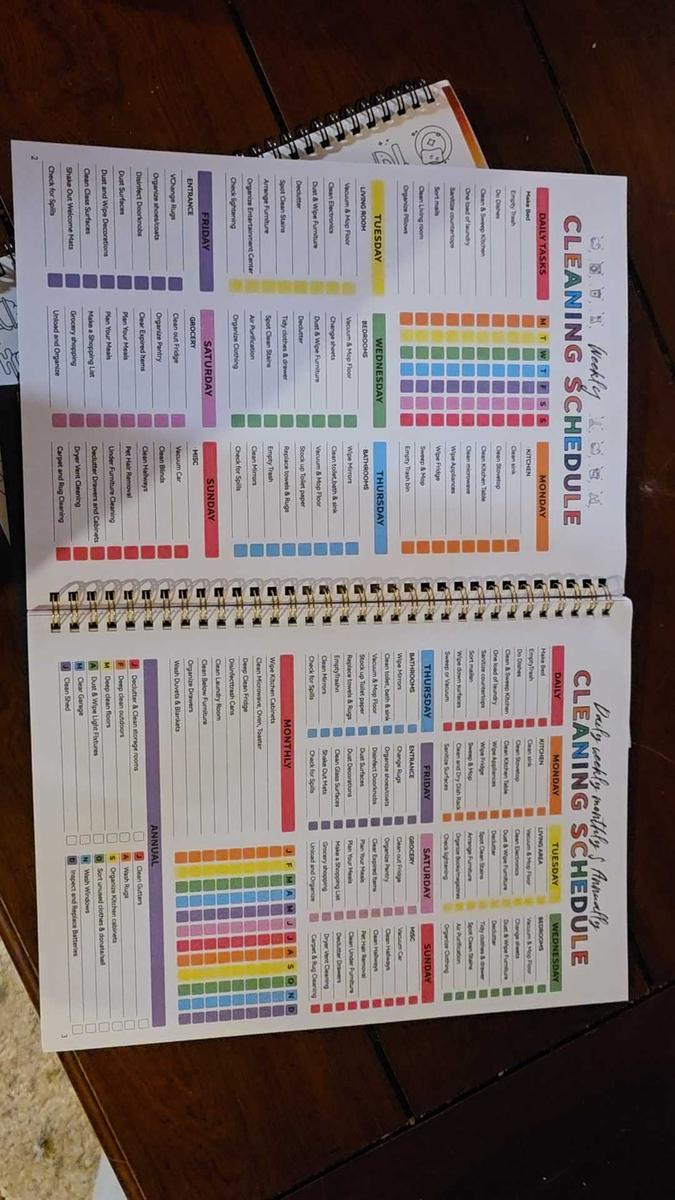 Weekly
CLEANING SCHEDULE
DAILY TASKS
M T W T F S S
Make Bed
Empty Trash
Do Dishes
Clean & Sweep Kitchen
One load of laundry
Sanitize countertops
Sort mails
Clean Living room
Organize Pillows
MONDAY
KITCHEN
Clean sink
Clean Stovetop
Clean Kitchen Table
Clean microwave
Wipe Appliances
Wipe Fridge
Sweep & Mop
Empty Trash bin
TUESDAY
LIVING ROOM
Vacuum & Mop Floor
Clean Electronics
Dust & Wipe Furniture
Declutter
Spot Clean Stains
Arrange Furniture
Organize Entertainment Center
Check lightening
WEDNESDAY
BEDROOMS
Vacuum & Mop Floor
Change sheets
Dust & Wipe Furniture
Declutter
Tidy clothes & drawer
Spot Clean Stains
Air Purification
Organize Clothing
THURSDAY
BATHROOMS
Wipe Mirrors
Clean toilet,bath & sink
Vacuum & Mop Floor
Stock up Toilet paper
Replace towels & Rugs
Empty Trash
Clean Mirrors
Check for Spills
FRIDAY
ENTRANCE
VChange Rugs
Organize shoes/coats
Disinfect Doorknobs
Dust Surfaces
Dust and Wipe Decorations
Clean Glass Surfaces
Shake Out Welcome Mats
Check for Spills
SATURDAY
GROCERY
Clean out Fridge
Organize Pantry
Clear Expired Items
Plan Your Meals
Plan Your Meals
Make a Shopping List
Grocery shopping
Unload and Organize
SUNDAY
MISC
Vacuum Car
Clean Blinds
Clean Hallways
Pet Hair Removal
Under Furniture Cleaning
Declutter Drawers and Cabinets
Dryer Vent Cleaning
Carpet and Rug Cleaning
2
Daily weekly monthly & Annually
CLEANING SCHEDULE
DAILY
Make Bed
EmptyTrash
Do Dishes
Clean & Sweep Kitchen
One load of laundry
Sanitize countertops
Sort mailen
Wipe down surfaces
Sweep or Vacuum
MONDAY
KITCHEN
Clean sink
Clean Stovetop
Clean Kitchen Table
Wipe Appliances
Wipe Fridge
Sweep & Mop
Clean and Dry Dish Rack
Sanitize Surfaces
TUESDAY
LIVING AREA
Vacuum & Mop Floor
Clean Electronics
Dust & Wipe Furniture
Declutter
Spot Clean Stains
Arrange Furniture
Organize Books/magazines
Check lightening
WEDNESDAY
BEDROOMS
Vacuum & Mop Floor
Change sheets
Dust & Wipe Furniture
Declutter
Tidy clothes & drawer
Spot Clean Stains
Air Purification
Organize Clothing
THURSDAY
BATHROOMS
Wipe Mirrors
Clean toilet, bath & sink
Vacuum & Mop Floor
Stock up Toilet paper
Replace towels & Rugs
EmptyTrashn
Clean Mirrors
Check for Spills
FRIDAY
ENTRANCE
Change Rugs
Organize shoes/coats
Disinfect Doorknobs
Dust Surfaces
Dust Decorations
Clean Glass Surfaces
Shake Out Mats
Check for Spills
SATURDAY
GROCERY
Clean out Fridge
Organize Pantry
Clear Expired Items
Plan Your Meals
Plan Your Meals
Make a Shopping List
Grocery shopping
Unload and Organize
SUNDAY
MISC
Vacuum Car
Clean Hallways
Clean Hallways
Pet Hair Removal
Clean Under Furniture
Declutter Drawers
Dryer Vent Cleaning
Carpet & Rug Cleaning
MONTHLY
J F M A M J J A S O N D
Wipe Kitchen Cabinets
Clean Microwave, Oven, Toaster
Deep Clean Fridge
Disinfecttrash Cans
Clean Laundry Room
Clean Below Furniture
Organize Drawers
Wash Duvets & Blankets
ANNUAL
J Declutter & Clean storage rooms
F Deep clean outdoors
M Deep clean floors
A Dust & Wipe Light Fixtures
M Clear Garage
J Clean Shed
J Clean Gutters
A Wash Rugs
S Organize Kitchen cabinets
O Sort unused clothes & donate/sell
N Wash Windows
D Inspect and Replace Batteries
3